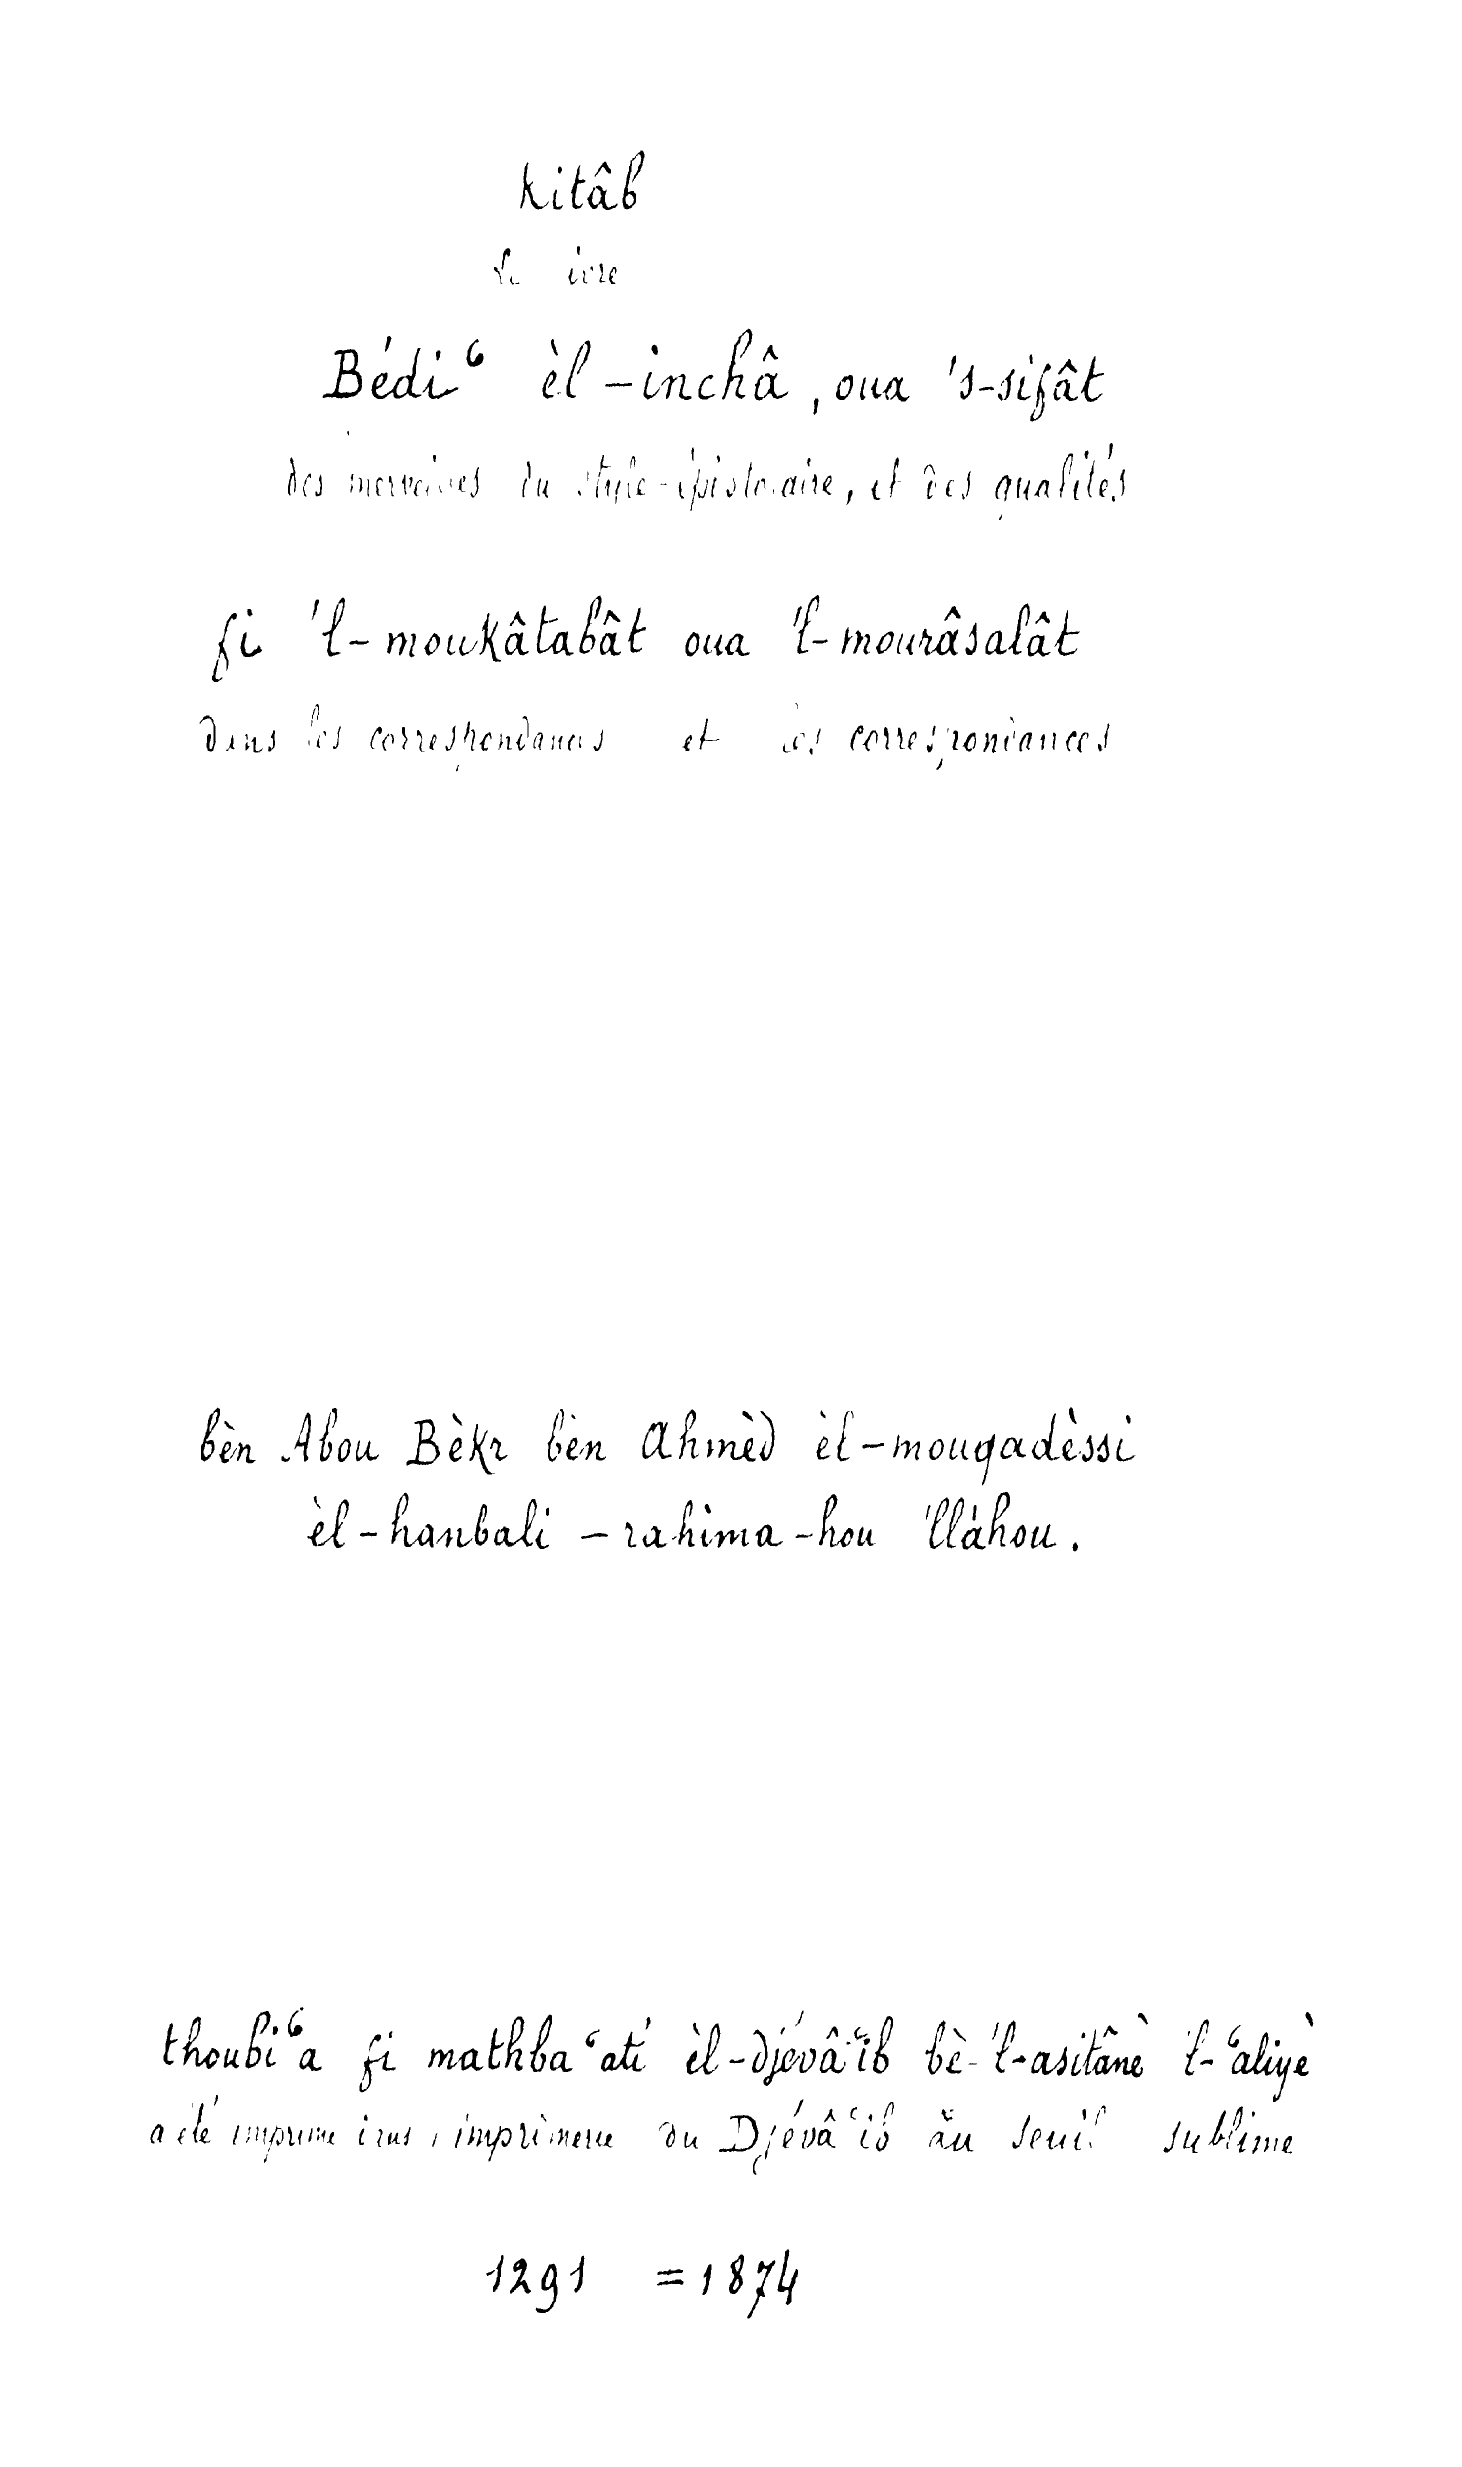 Kitâb
Le livre
Bédi‘ èl-inchâ, oua 's-sifât
des merveilles du style-épistolaire, et des qualités
fi 'l-moukâtabât oua 'l-mourâsalât
dans les correspondances et les correspondances
bèn Abou Bèkr bèn Ahmèd èl-mouqadèssi
èl-hanbali - rahima-hou 'llâhou.
thoubi‘a fi mathba‘ati èl-djévâ‘ib bè-'l-asitânè 'l-‘aliyè
a été imprimé dans l'imprimerie du Djévâ‘ib au seuil sublime
1291 = 1874